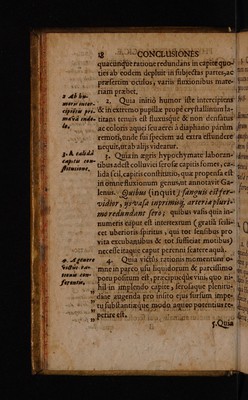 18 CONCLUSIONES
quacunque ratione redundans in capite quo-
ties ab eodem depluit in subjectas partes, ac
præsertim oculos, variis fluxionibus mate-
riam præbet.
2. Ab hu-
2. Quia initiò humor iste intercipient
& in extremo pupillæ propè crystallinum la-
titans tenuis est fluxusque & non densatus
ac coloris aquei seu aeris à diaphano parùm
remoti, unde suspectum ad extra effundere
nequit, ut ab aliis videatur.
3. à calida
capitis con-
stitutione.
3. Quia in ægris hypochymate laboran-
tibus adest colluvies serosæ capitis fomes, ca-
lida scil. capitis constitutio, quæ propensa est
in omne fluxionum genus, ut annotavit Ga-
lenus. Quibus (inquit) sanguis est fer-
vidior, iis vasa in primisq; arteria pluri-
mo redundant sero; quibus vasis quia in-
numeris caput est intertextum
est uberioris spiritus, qui tot sensibus pro
vita excubantibus & tot
necesse itaque caput perenni scatere aqua.
4. à genere
victus
4. Quia victus rationis momentum o-
mne in parco usu liquidorum & parcissimo
potu positum est, præcipueque vini, quo ni-
hil in implendo capite, serosaque plenitu-
dine augenda pro insito ejus sursum impe-
tu substantiæque modo aqueo potentius re-
perire est.
5. Quia